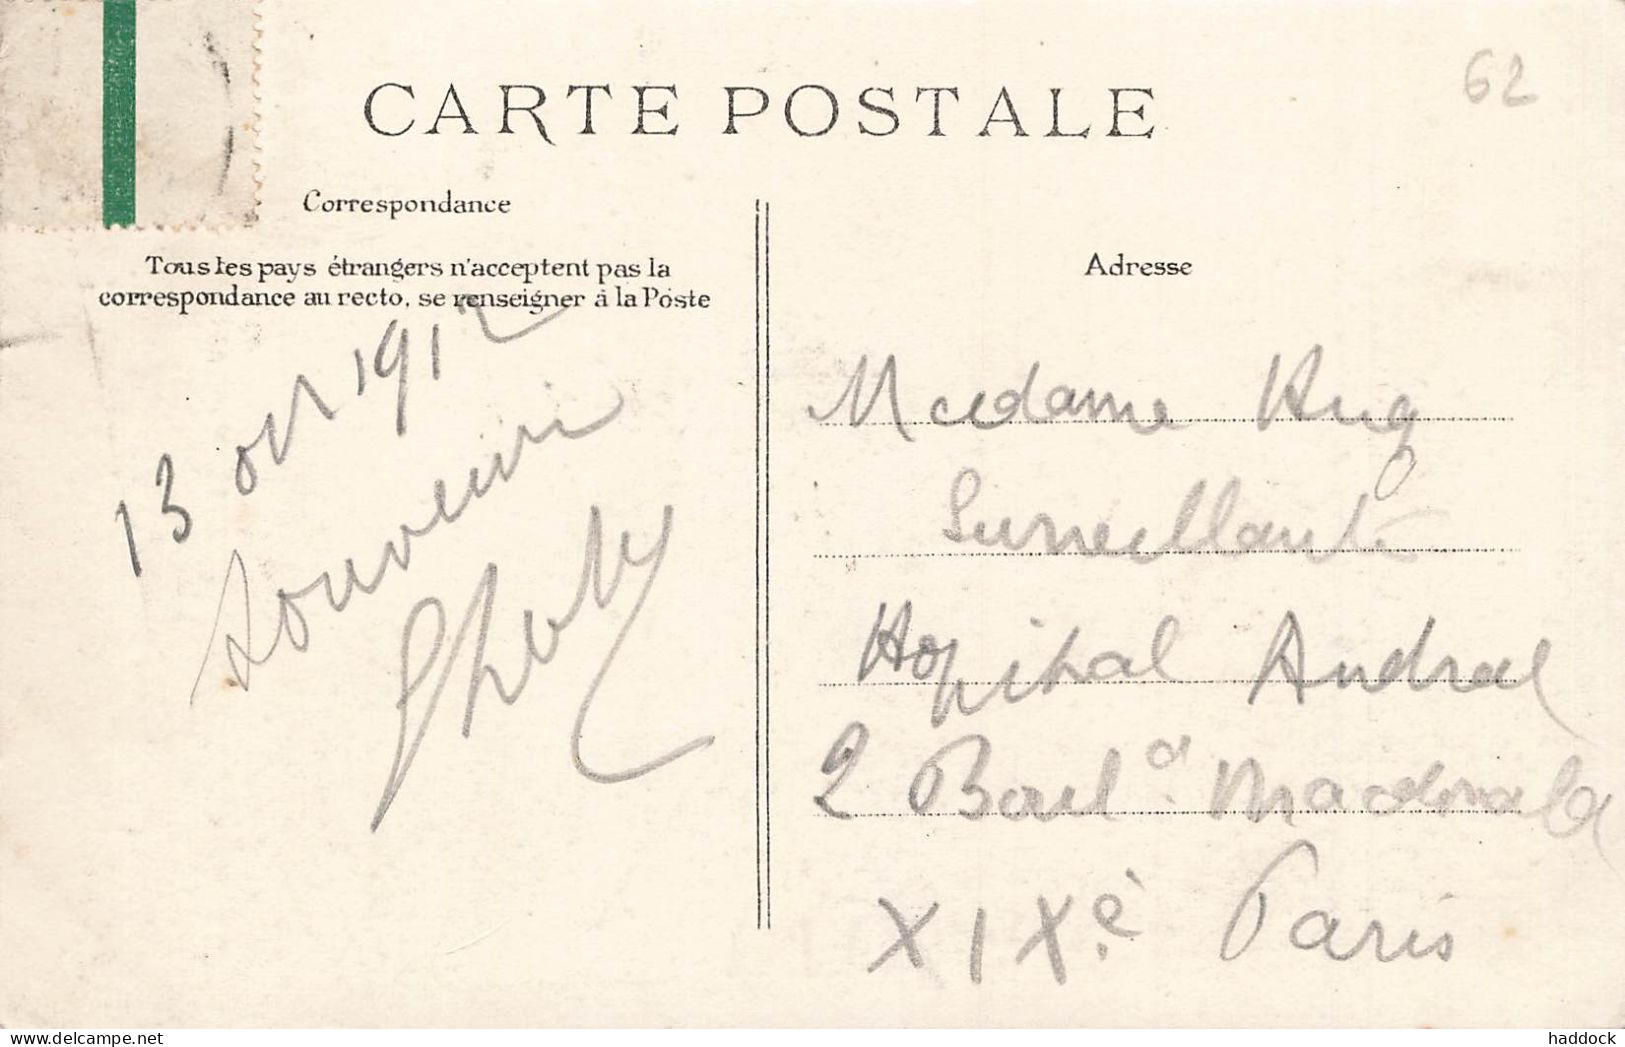 CARTE POSTALE
62
Correspondance
Tous les pays étrangers n'acceptent pas la
correspondance au recto, se renseigner à la Poste
13 oct 1912
Souvenir
Adresse
Madame Hug
Surveillante
Hopital Andral
2 Boul.d Macdonald
XIXè Paris
delcampe.net
haddock